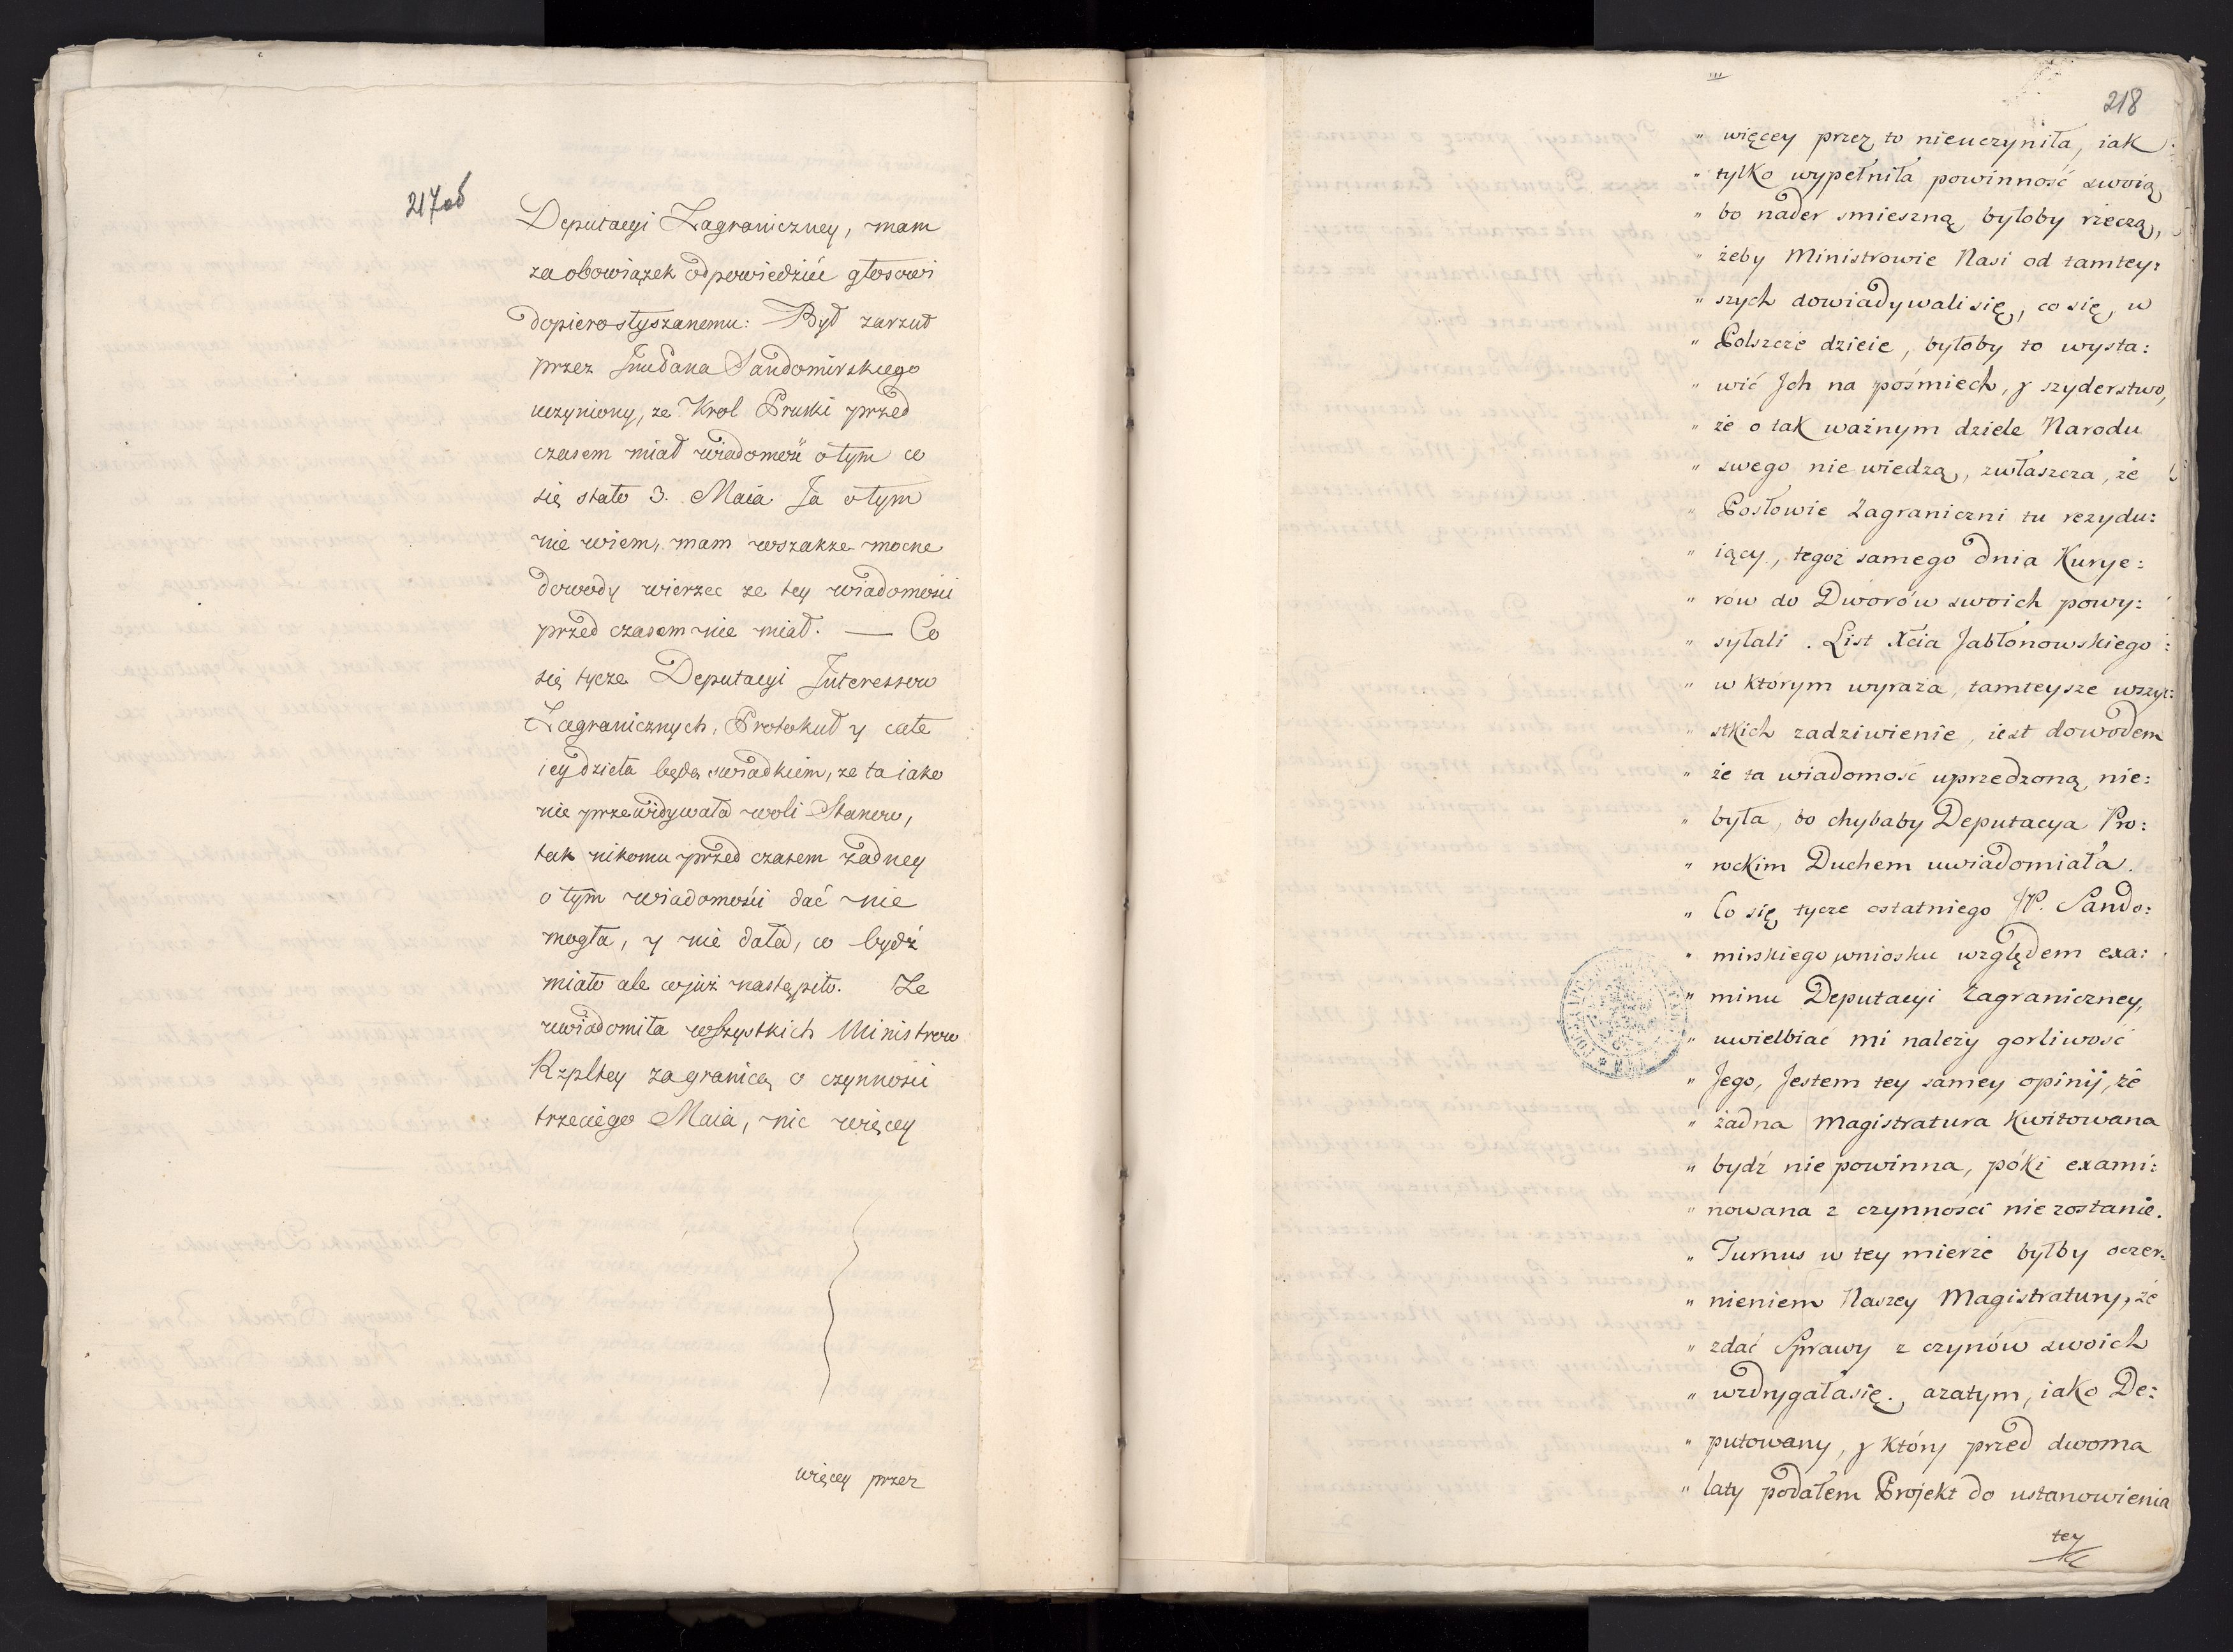 217 об
Deputacyi Zagraniczney, mam
za obowiązek odpowiedzić głosowi
dopiero słyszanemu: Był zarzut
przez Sandomirskiego
uczyniony, ze Krol Pruski przed
czasem miał wiadomość o tym co
się stało 3. Maia Ja o tym
nie wiem, mam wszakze mocne
dowody wierzec ze tey wiadomości
przed czasem nie miał. — Co
się tycze Deputacyi Interessow
Zagranicznych, Protokuł y całe
iey dzieła będą swiadkiem, ze ta iako
nie przewidywała woli Stanow,
tak nikomu przed czasem żadney
o tym wiadomości dać nie
mogła, y nie dała, co bydź
miało ale co już nastąpiło. Ze
uwiadomiła wszystkich Ministrow
Rzpltey zagranicą o czynności
trzeciego Maia, nic więcey
więcey przez
218
" więcey przez to nieuczyniła, iak
" tylko wypełniła powinność swoią
" bo nader smieszną byłoby rzeczą,
" żeby Ministrowie Nasi od tamtey:
" szych dowiadywali się, co się, w
" Polszcze dzieie, byłoby to wysta:
" wić Jch na pośmiech, y szyderstwo,
" że o tak ważnym dziele Narodu
" swego nie wiedzą, zwłaszcza, że
" Posłowie Zagraniczni tu rezydu:
" iący, tegoż samego dnia Kurye:
" rów do Dworów swoich powy:
" syłali. List Xcia Jabłonowskiego
" w którym wyraża, tamteysze wszyt:
" stkich zadziwienie, iest dowodem
" że ta wiadomość uprzedzoną nie:
" była, bo chybaby Deputacya Pro:
" rockim Duchem uwiadomiała.
" Co się tycze ostatniego JP. Sando:
" mirskiego wniosku względem exa:
" minu Deputacyi Zagraniczney,
" uwielbiać mi należy gorliwość
" Jego, Jestem tey samey opinij, że
" żadna Magistratura Kwitowana
" bydź nie powinna, póki exami:
" nowana z czynności nie zostanie.
" Turnus w tey mierze byłby oczer:
" nieniem Naszey Magistratury, że
" zdać Sprawy z czynów swoich
" wzdrygała się., azatym, iako De:
" putowany, y który przed dwoma
" laty podałem Projekt do ustanowienia
tey